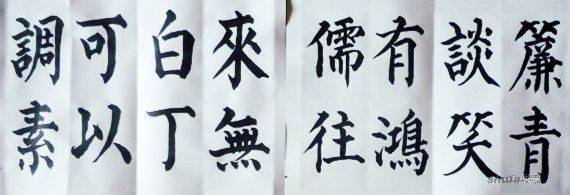 簾青
談笑
有鴻
儒往
來無
白丁
可以
調素